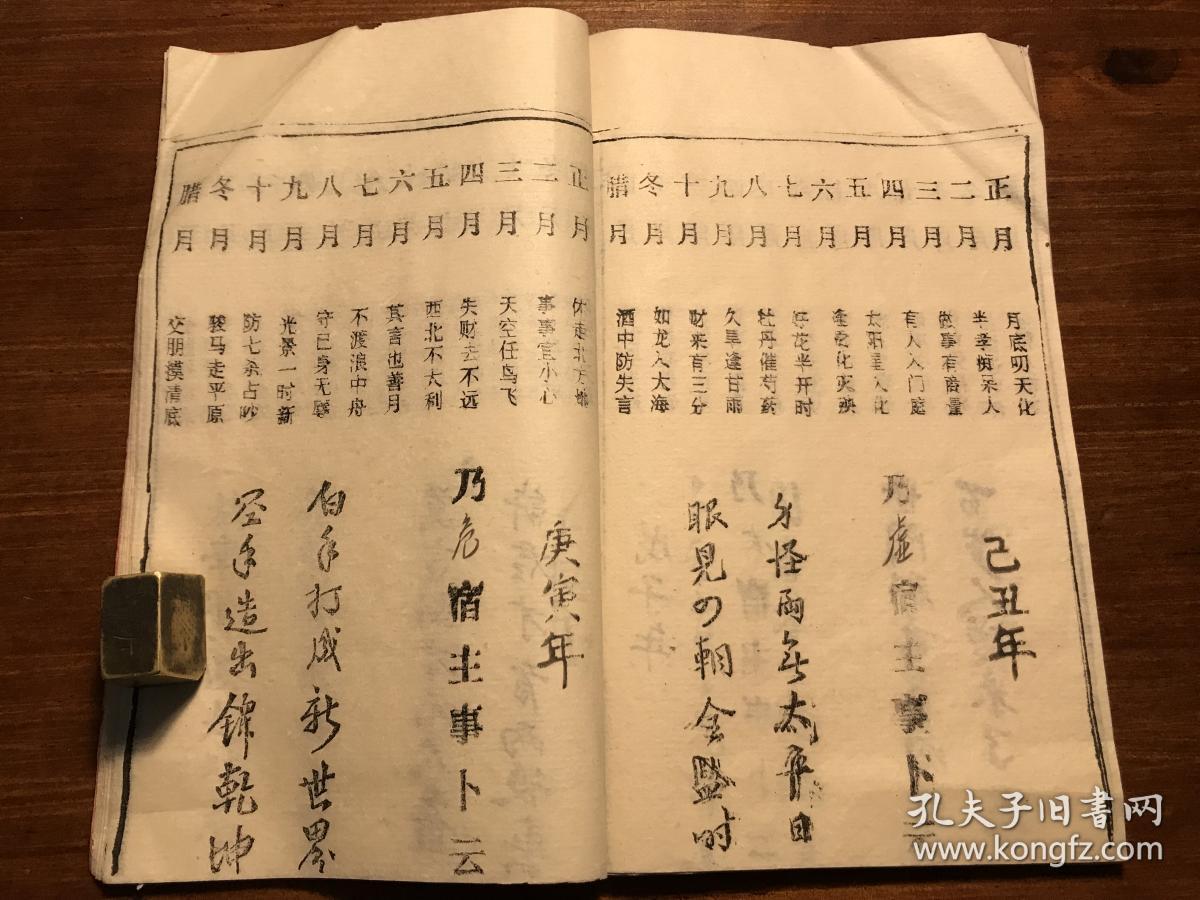 正月 月底明天化
二月 半孝痴呆人
三月 做事有商量
四月 有人入门庭
五月 太阳星入化
六月 逢妻化灾殃
七月 好花半开时
八月 牡丹催芍药
九月 久旱逢甘雨
十月 财来有三分
冬月 如龙入大海
腊月 酒中防失言
己丑年
乃虚宿主事卜云
怪雨
眼見の朝全盛时
正月 休走北方
二月 事事宜小心
三月 天空任鸟飞
四月 失财去不远
五月 西北不大利
六月 其言也善月
七月 不渡浪中舟
八月 守已身无辱
九月 光景一时新
十月 防七杀占
冬月 骏马走平原
腊月 交朋摸清底
庚寅年
乃危宿主事卜云
白手打成新世界
空手造出錦乾坤
孔夫子旧书网
www.kongfz.com